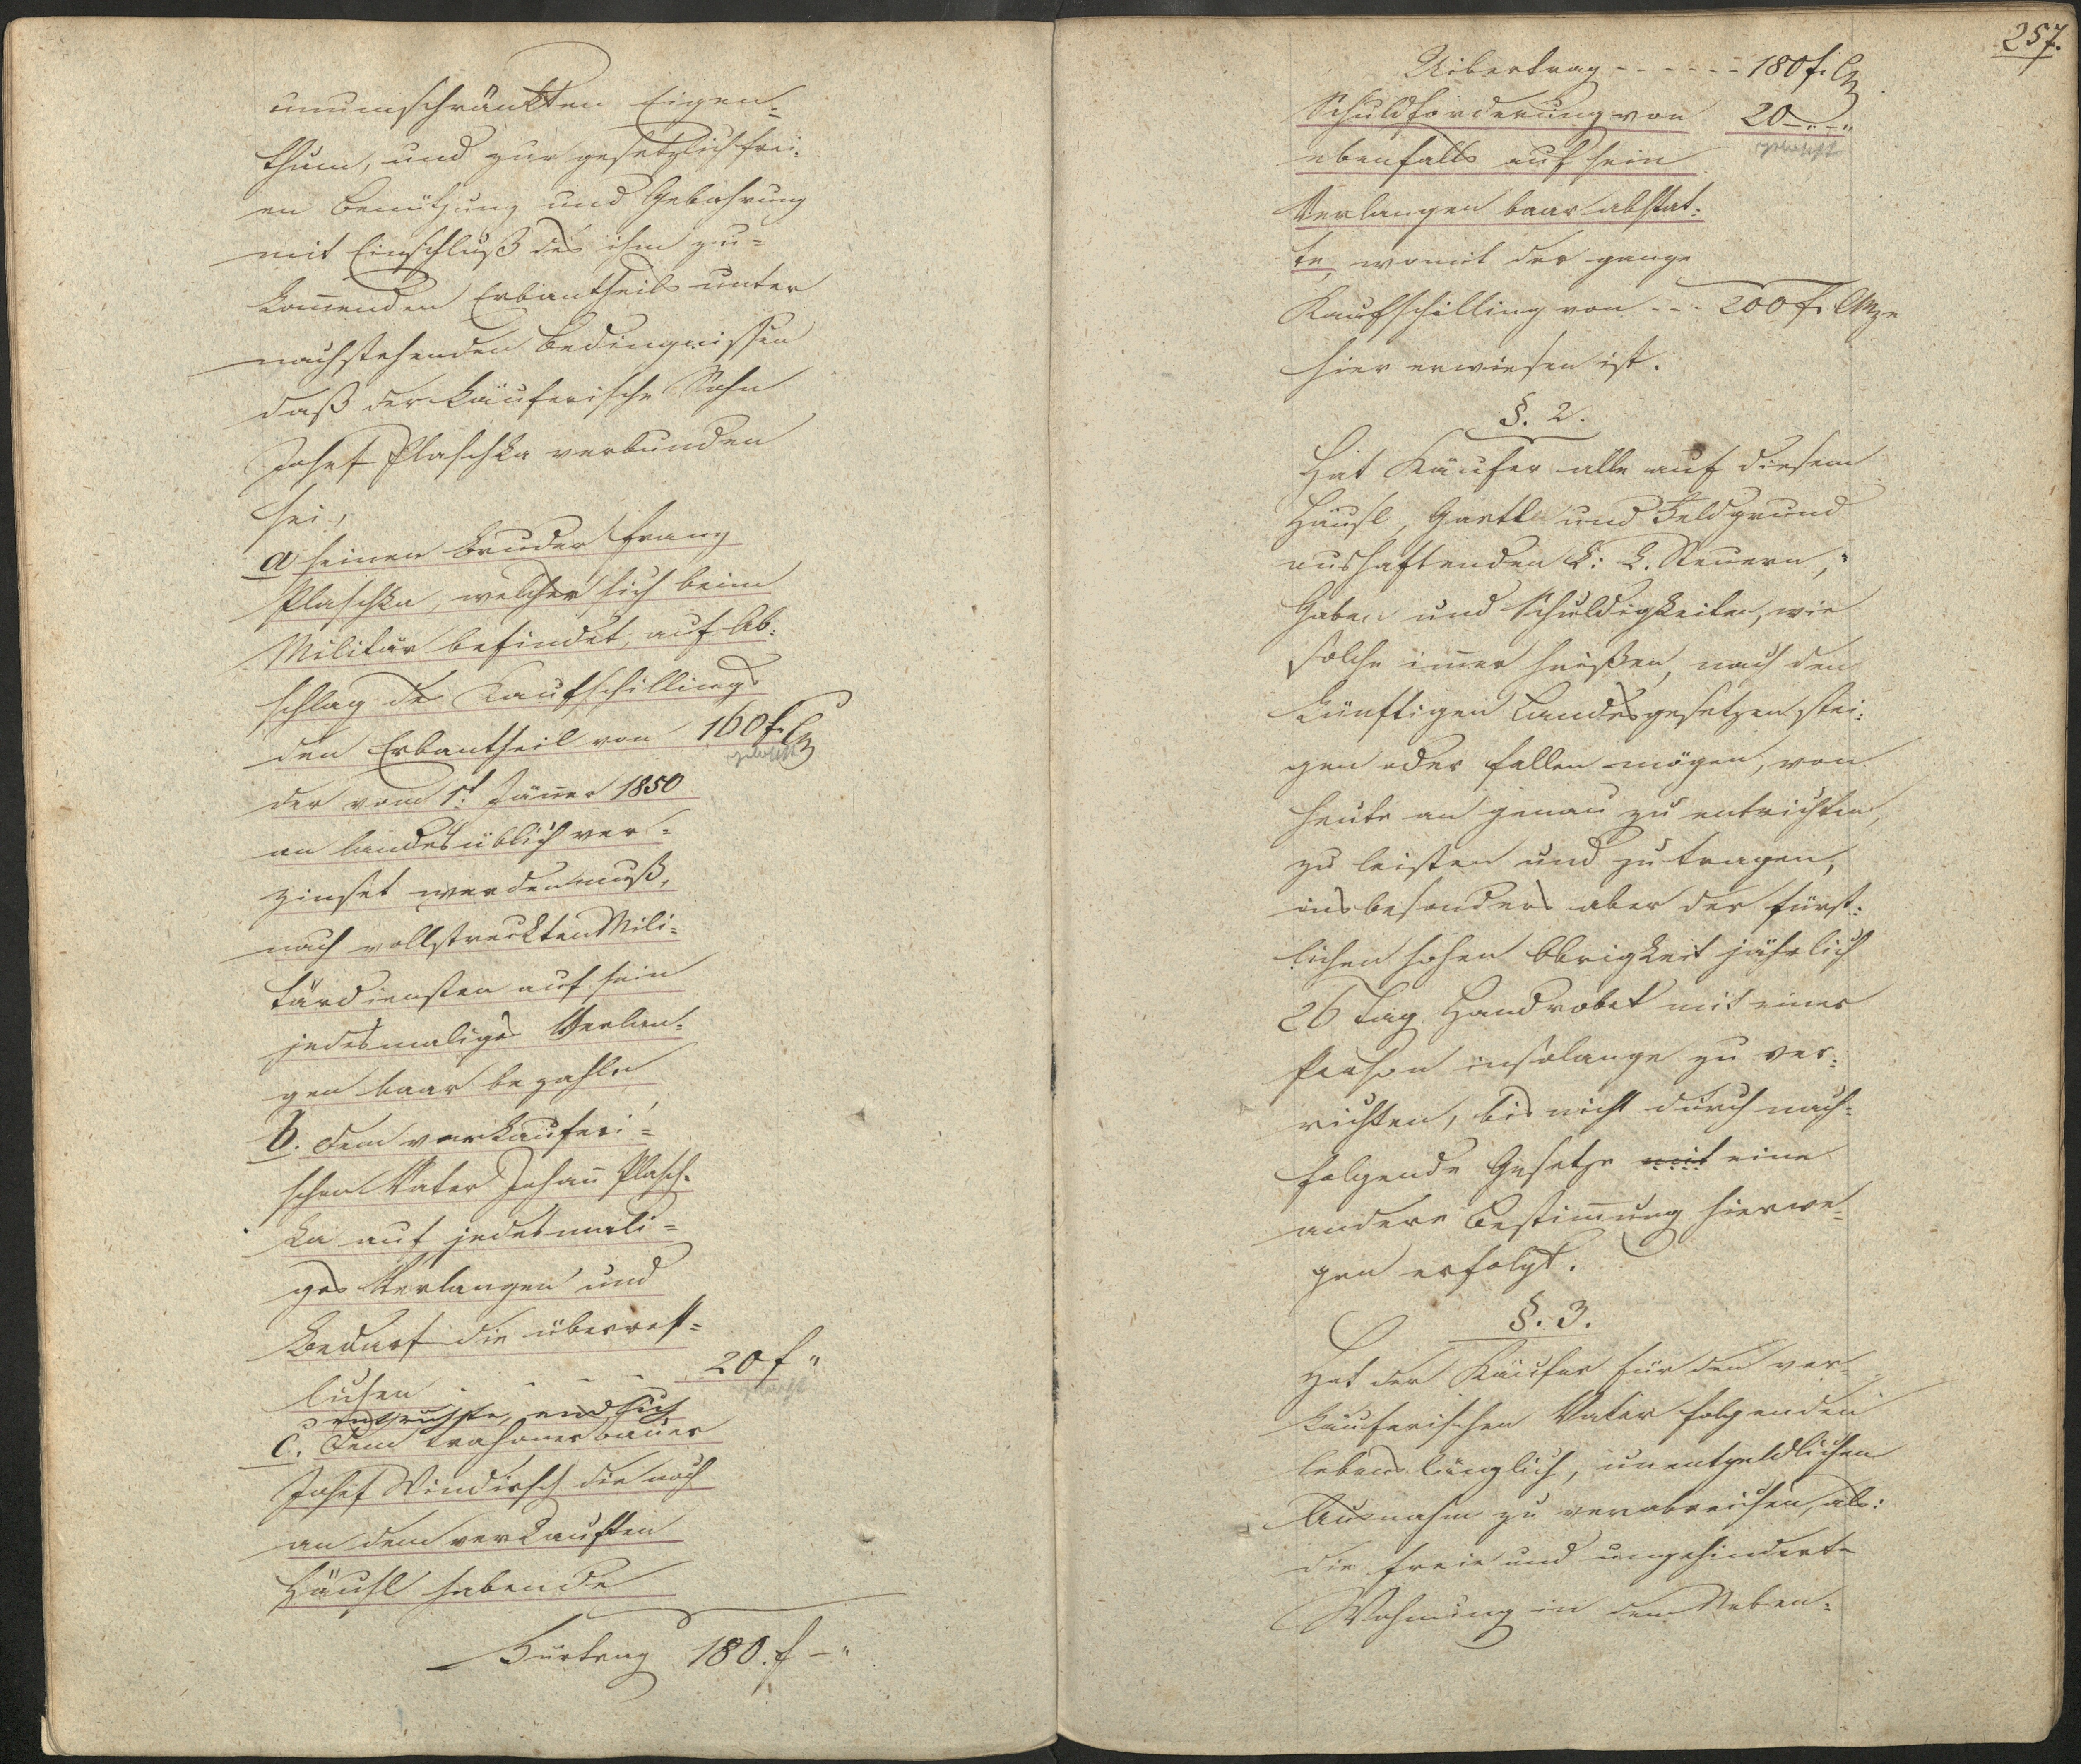 unumschränkten Eigen=
thum, und zur gesetzlich frei=
en Benützung und Gebahrung
mit Einschluß des ihm zu=
kom̅enden Erbantheils unter
nachstehenden Bedingnissen
daß der käuferische Sohn
Josef Plaschka verbunden
sei,
a seinen Bruder Franz
Plaschka, welcher sich beim
Militär befindet, auf Ab=
schlag des Kaufschillings
den Erbantheil von 160 f. CM
gelöscht
der vom 1t. Jän̅er 1850
an landesüblich ver=
zinset werden muß,
nach vollstreckten Mili=
tärdiensten auf sein
jedesmaliges Verlan=
gen baar bezahle,
b. dem verkäuferi=
schen Vater Johan̅ Plasch=
ka auf jedesmali=
ges Verlangen und
Bedarf die überrest=
lichen - - - - 20 f "
gelöscht
entrichte, endlich
C. dem bauer
Josef Windisch die noch
an dem verkauften
Häusl habende
Fürtrag 180. f - "
257.
Uibertrag - - - - - - 180 f. CM
Schuldforderung von 20 - " - "
gelöscht
ebenfalls auf sein
Verlangen baar abstat=
te, womit der ganze
Kaufschilling von - - - 200 f. CMze
hier erwiesen ist.
§. 2.
Hat Käufer alle auf diesem
Häusl, Gartl und Feldgrund
aushaftenden k: k. Steuern,
Gaben und Schuldigkeiten, wie
solche im̅er heißen, nach den
künftigen Landesgesetzen stei=
gen oder fallen mögen, von
heute an genau zu entrichten,
zu leisten und zu tragen,
insbesonders aber der fürst=
lichen hohen Obrigkeit jährlich
26 Tag Handrobot mit einer
Person insolange zu ver=
richten, bis nicht durch nach=
folgende Gesetze mit eine
andere Bestim̅ung hierwe=
gen erfolgt.
§. 3.
Hat der Käufer für den ver=
käuferischen Vater folgenden
lebenslänglich, unentgeldlichen
Ausnahm zu verabreichen, als:
die freie und ungehinderte
Wohnung in dem Neben=